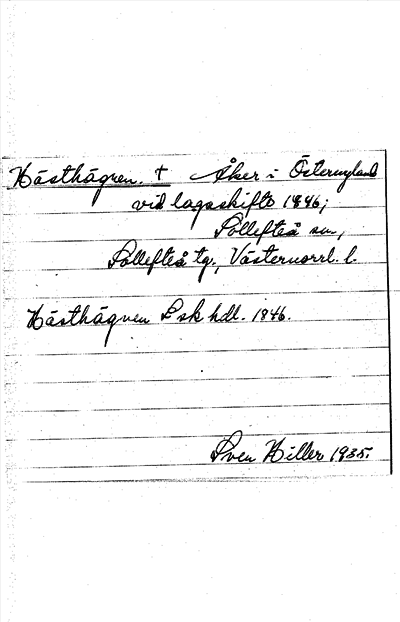 Hästhägnen. † Åker i Östernyland
vid lagaskifte 1846;
Sollefteå sn,
Sollefteå tg., Västernorrl. l.
Hästhägnen L sk hdl. 1846.
Sven Hiller 1935.